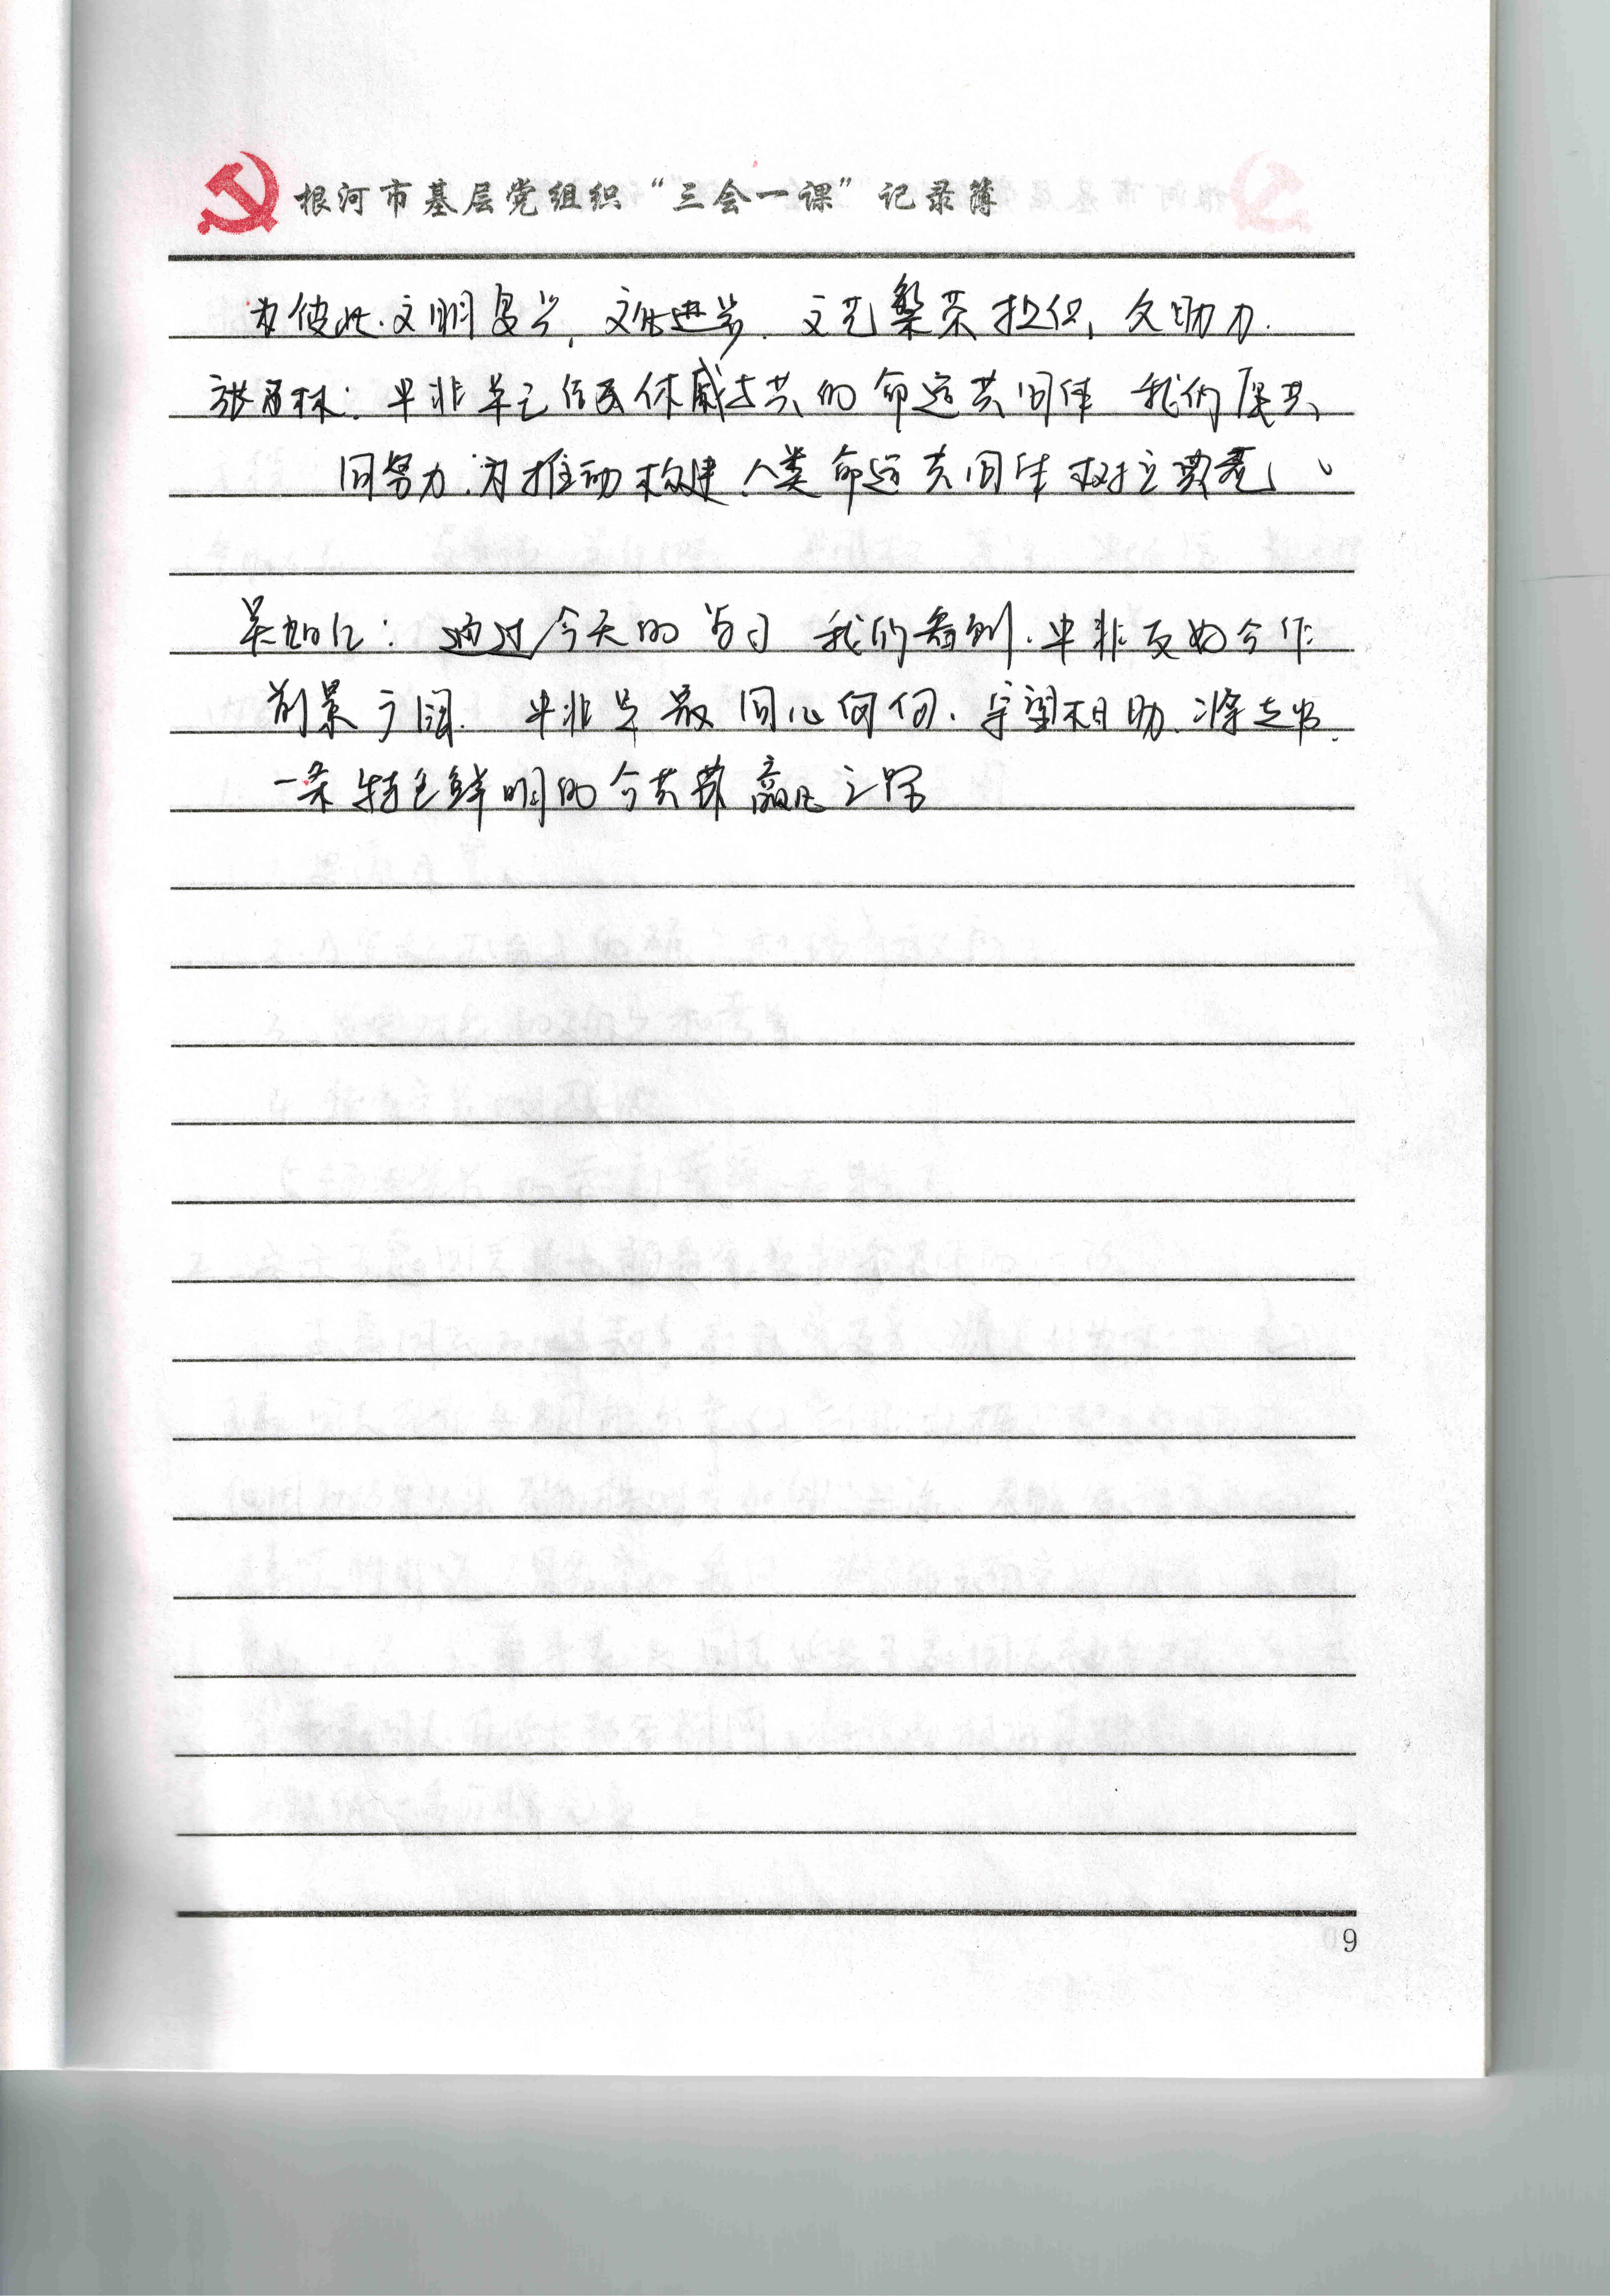 根河市基层党组织“三会一课”记录簿
为彼此文明复兴,文化进步.文艺繁荣提供,助力.
林:中非早已结成休戚与共的命运共同体 我们应共
同努力,为推动构建人类命运共同体树立典范
吴:通过今天的学习 我们看到.中非友好合作
前景广阔.中非只要同心同向.守望相助.将走出
一条特色鲜明的合共赢之路
9